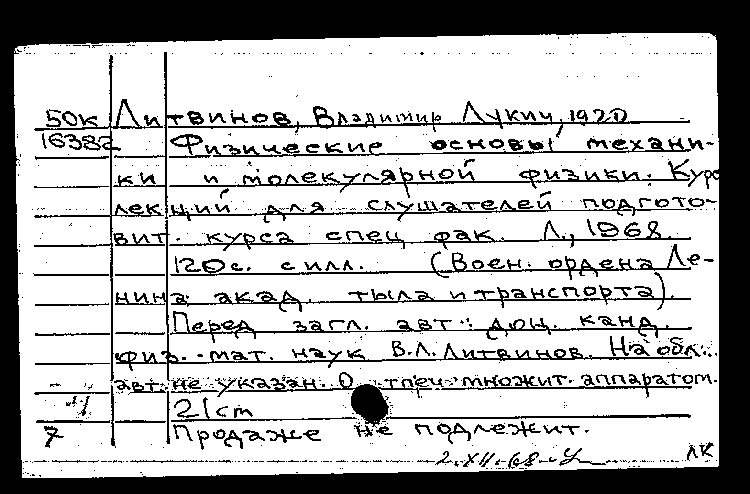 50к Литвинов, Владимир Лукич, 1920
16382 Физические основы механи-
ки и молекулярной физики. Курс
лекций для слушателей подгото-
вит. курса спец. фак. Л., 1968.
120 с. с илл. (Воен. ордена Ле-
нина акад. тыла и транспорта).
Перед загл. авт.: доц. канд.
физ.-мат. наук В.Л. Литвинов. На обл.
авт. не указан. Отпеч. множит. аппаратом.
21 cm
7 Продаже не подлежит.
2.XII.68 ЛК